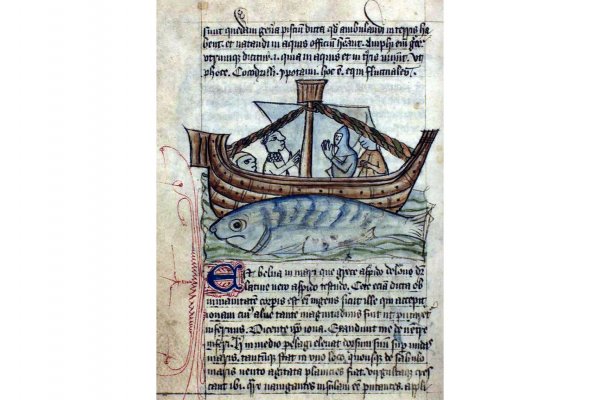 sunt quedam genera piscium dicta qd ambulandi in terris ha
bent. et natandi in aquis officium hñt. Amphi em̄ gre
utrumque dicitur .i. quia in aquis et in tr̄is uiuunt. Vt
phoce. Cocodrilli. ypotami. hoc ē. equi fluctuales.
Est belua in mari que grece aspido delone dr̄
latine uero aspido testudo. Cete eciā dicta ob
inmanitatem corpis est em̄ ingens sicut ille qui accepit
ionam cuiꝰ aluꝰ tante magnitudinis fuit ut putaret
infernus. Dicente ipo iona. Exaudiuit me de uentre
inferi. H in medio pelagi eleuat dorsum suū sup undas
maris. tantūque stat in uno loco. quousque de sabulo
maris uento agitata planicies fiat. uirgultaque cres
cant ibi. Qre nauigantes insulam ēe putantes. appli